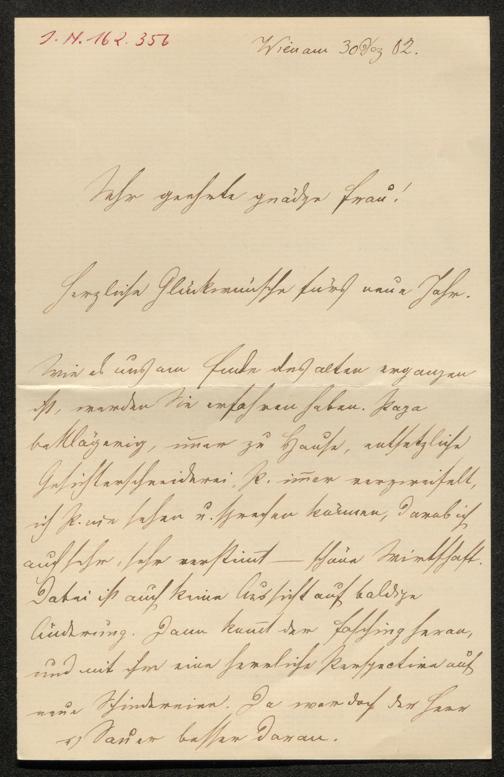 J. N. 162.356
Wien am 30 Dez 02.
Sehr geehrte gnädge Frau!
Herzliche Glückwünsche fürs neue Jahr.
Wie es uns am Ende des alten ergangen
ist, werden Sie erfahren haben. Papa
, immer zu Hause, entsetzliche
Gesichterschneiderei, P. immer verzweifelt,
ich P. nie sehen u. sprechen können, darob ich
auch sehr, sehr verstimt — schöne Wirtschaft.
Dabei ist auch keine Aussicht auf baldige
Änderung. Dann komt der Fasching heran,
und mit ihm eine herrliche Perspective auf
neue Schindereien. Da war doch der Herr
v Sauer besser daran.